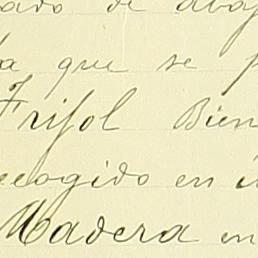 ado de abaj
a que se p
Frifol Bien
ecogido en u
Madera en